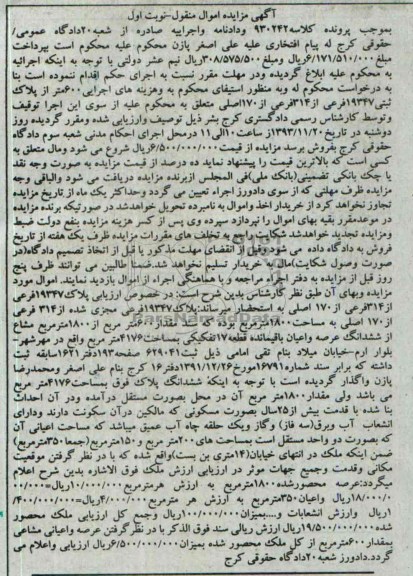 آگهی مزایده اموال منقول-نوبت اول
بموجب پرونده کلاسه۹۳۰۲۴۲ ودادنامه واجراییه صادره از شعبه۲۰دادگاه عمومی/
حقوقی کرج له پیام افتخاری علیه علی اصغر پازن محکوم علیه محکوم است بپرداخت
مبلغ۶/۱۷۱/۵۱۰/۰۰۰ریال ومبلغ۳۰۸/۵۷۵/۵۰۰ریال نیم عشر دولتی با توجه به اینکه اجرائیه
به محکوم علیه ابلاغ گردیده ودر مهلت مقرر نسبت به اجرای حکم اقدام ننموده است بنا
به درخواست محکوم له وبه منظور استیفای محکوم به وهزینه های اجرایی۶۰۰متر از پلاک
ثبتی۱۹۳۴۷فرعی از۳۱۴فرعی از۱۷۰اصلی متعلق به محکوم علیه از سوی این اجرا توقیف
وتوسط کارشناس رسمی دادگستری کرج بشر ذیل توصیف وارزیابی شده ومقرر گردیده روز
دوشنبه در تاریخ۱۳۹۳/۱۱/۲۰از ساعت۱۰الی۱۱ درمحل اجرای احکام مدنی شعبه سوم دادگاه
حقوقی کرج بفروش برسد مزایده از قیمت۶/۵۰۰/۰۰۰/۰۰۰ریال شروع می شود ومال متعلق به
کسی است که بالاترین قیمت را پیشنهاد نماید ده درصد از قیمت مزایده به صورت وجه نقد
یا چک بانکی تضمینی(بانک ملی)فی المجلس ازبرنده مزایده دریافت می شود والباقی وجه
مزایده ظرف مهلتی که از سوی دادورز اجراء تعیین می گردد وحداکثر یک ماه از تاریخ مزایده
تجاوز نخواهد کرد از خریدار اخذ واموال به نامبرده تحویل خواهدشد در صورتیکه برنده مزایده
در موعدمقرر بقیه بهای اموال را نپردازد سپرده وی پس از کسر هزینه مزایده بنفع دولت ضبط
ومزایده تجدید خواهدشد شکایت راجع به تخلف های مقررات مزایده ظرف یک هفته از تاریخ
فروش به دادگاه داده می شود وقبل از انقضای مهلت مذکور یا قبل از اتخاذ تصمیم دادگاه(در
صورت وصول شکایت)مال به خریدار تسلیم نخواهد شد.ضمنا طالبین می توانند ظرف پنج
روز قبل از مزایده به دفتر اجراء مراجعه و با هماهنگی اجراء از اموال بازدید نمایند. اموال مورد
مزایده وبهای آن طبق نظر کارشناس بدین شرح است: در خصوص ارزیابی پلاک۱۹۳۴۷فرعی
از۳۱۴فرعی از۱۷۰ اصلی به استحضار میرساند:پلاک۱۹۳۴۷فرعی مجزی شده از۳۱۴ فرعی
از۱۷۰ اصلی به مساحت۱۸۰۰مترمربع بوده که سند مقدار۶۰۰متر مربع از۱۸۰۰مترمربع مشاع
از ششدانگ عرصه واعیان باقیمانده قطعه۱۷تفکیکی بمساحت۴۱۷۶متر مربع واقع در مهرشهر-
بلوار ارم-خیابان میلاد بنام تقی امامی ذیل ثبت۶۲۹۰۴۱ صفحه۱۹۳دفتر۱۶۲۱سابقه ثبت
داشته که برابر سند شماره۱۶۷۹۱مورخ۱۳۹۱/۱۲/۲۶دفتر۱۶ کرج بنام علی اصغر ومحمدرضا
پازن واگذار گردیده است با توجه به اینکه ششدانگ پلاک فوق بمساحت۴۱۷۶متر مربع
می باشد ولی مقدار۱۸۰۰متر مربع آن در محل بصورت مستقل درآمده ودر آن احداث
بنا شده با قدمت بیش از۲۵سال بصورت مسکونی که مالکین درآن سکونت دارند ودارای
انشعاب آب وبرق(سه فاز) وگاز ویک حلقه چاه آب عمیق میباشد که مساحت اعیانی آن
که بصورت دو واحد مستقل است بمساحت های۲۰۰متر مربع و۱۵۰مترمربع(جمعا۳۵۰مترمربع)
ضمن اینکه ملک در انتهای خیابان(۱۴متری بن بست)واقع شده که با در نظر گرفتن موقعیت
مکانی وقدمت وجمیع جهات موثر در ارزیابی ارزش ملک فوق الاشاره بدین شرح اعلام
میگردد:عرصه محصورشده۱۸۰۰مترمربع به ارزش هرمترمربع۱۰/۰۰۰/۰۰۰ریال=۰۰۰/۰۰
۱۸/۰۰۰/۰ریال واعیان۳۵۰مترمربع به ارزش هر مترمربع۴/۰۰۰/۰۰۰ریال=۱/۴۰۰/۰۰۰/۰۰۰
ریال وارزش انشعابات و....بمیزان۱۰۰/۰۰۰/۰۰۰ریال وجمع کل ارزیابی ملک محصور
شده۱۹/۵۰۰/۰۰۰/۰۰۰ریال ارزش ریالی سند فوق الذکر با در نظرگرفتن عرصه واعیانی مشاعی
بمقدار۶۰۰مترمربع از کل ملک محصور شده بمیزان۶/۵۰۰/۰۰۰/۰۰۰ریال ارزیابی واعلام می
گردد.دادورز شعبه۲۰دادگاه حقوقی کرج